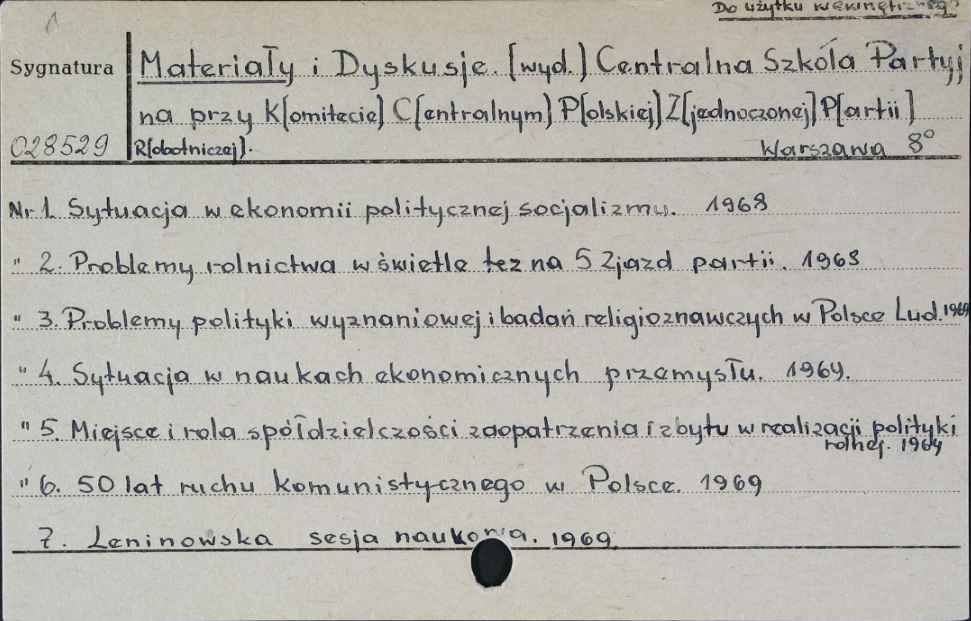 Do użytku wewnętrznego
Sygnatura
Materiały i Dyskusje. [wyd.] Centralna Szkóla Partyj
na przy K[omitecie] C[entralnym] P[olskiej] Z[jednoczonej] P[artii]
028529 R[obotniczej]. Warszawa 8°
Nr 1. Sytuacja w ekonomii politycznej socjalizmu. 1968
" 2. Problemy rolnictwa w świetle tez na 5 Zjazd partii. 1968
" 3. Problemy polityki wyznaniowej i badań religioznawczych w Polsce Lud. 1969
" 4. Sytuacja w naukach ekonomicznych przemysłu. 1969.
" 5. Miejsce i rola spółdzielczości zaopatrzenia i zbytu w realizacji polityki
rolnej. 1969
" 6. 50 lat ruchu komunistycznego w Polsce. 1969
7. Leninowska sesja naukowa. 1969.